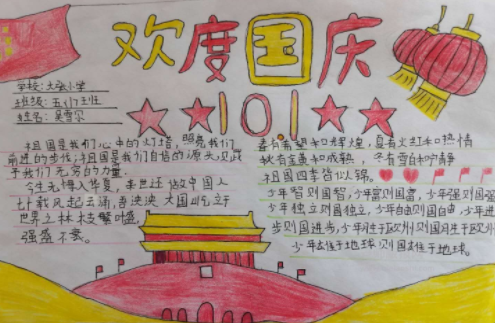 欢度国庆
学校:大张小学
班级:五(1)班
姓名:吴雪尔
10.1
祖国是我们心中的灯塔,照亮我们
前进的步伐;祖国是我们自信的源头,
于我们无穷的力量.
今生无悔入华夏,来世还做中国人
载风起云涌,泱泱大国屹立于
世界之林枝繁叶盛,
强盛不衰。
春有希望和辉煌,夏有火红和热情
秋有金黄和成熟,冬有雪白和宁静
祖国四季皆似锦。
少年智则国智,少年富则国富,少年强则国强
少年独立则国独立,少年自由则国自由,少年进
步则国进步,少年胜于欧州则国胜于欧州
少年雄于地球则国雄于地球。